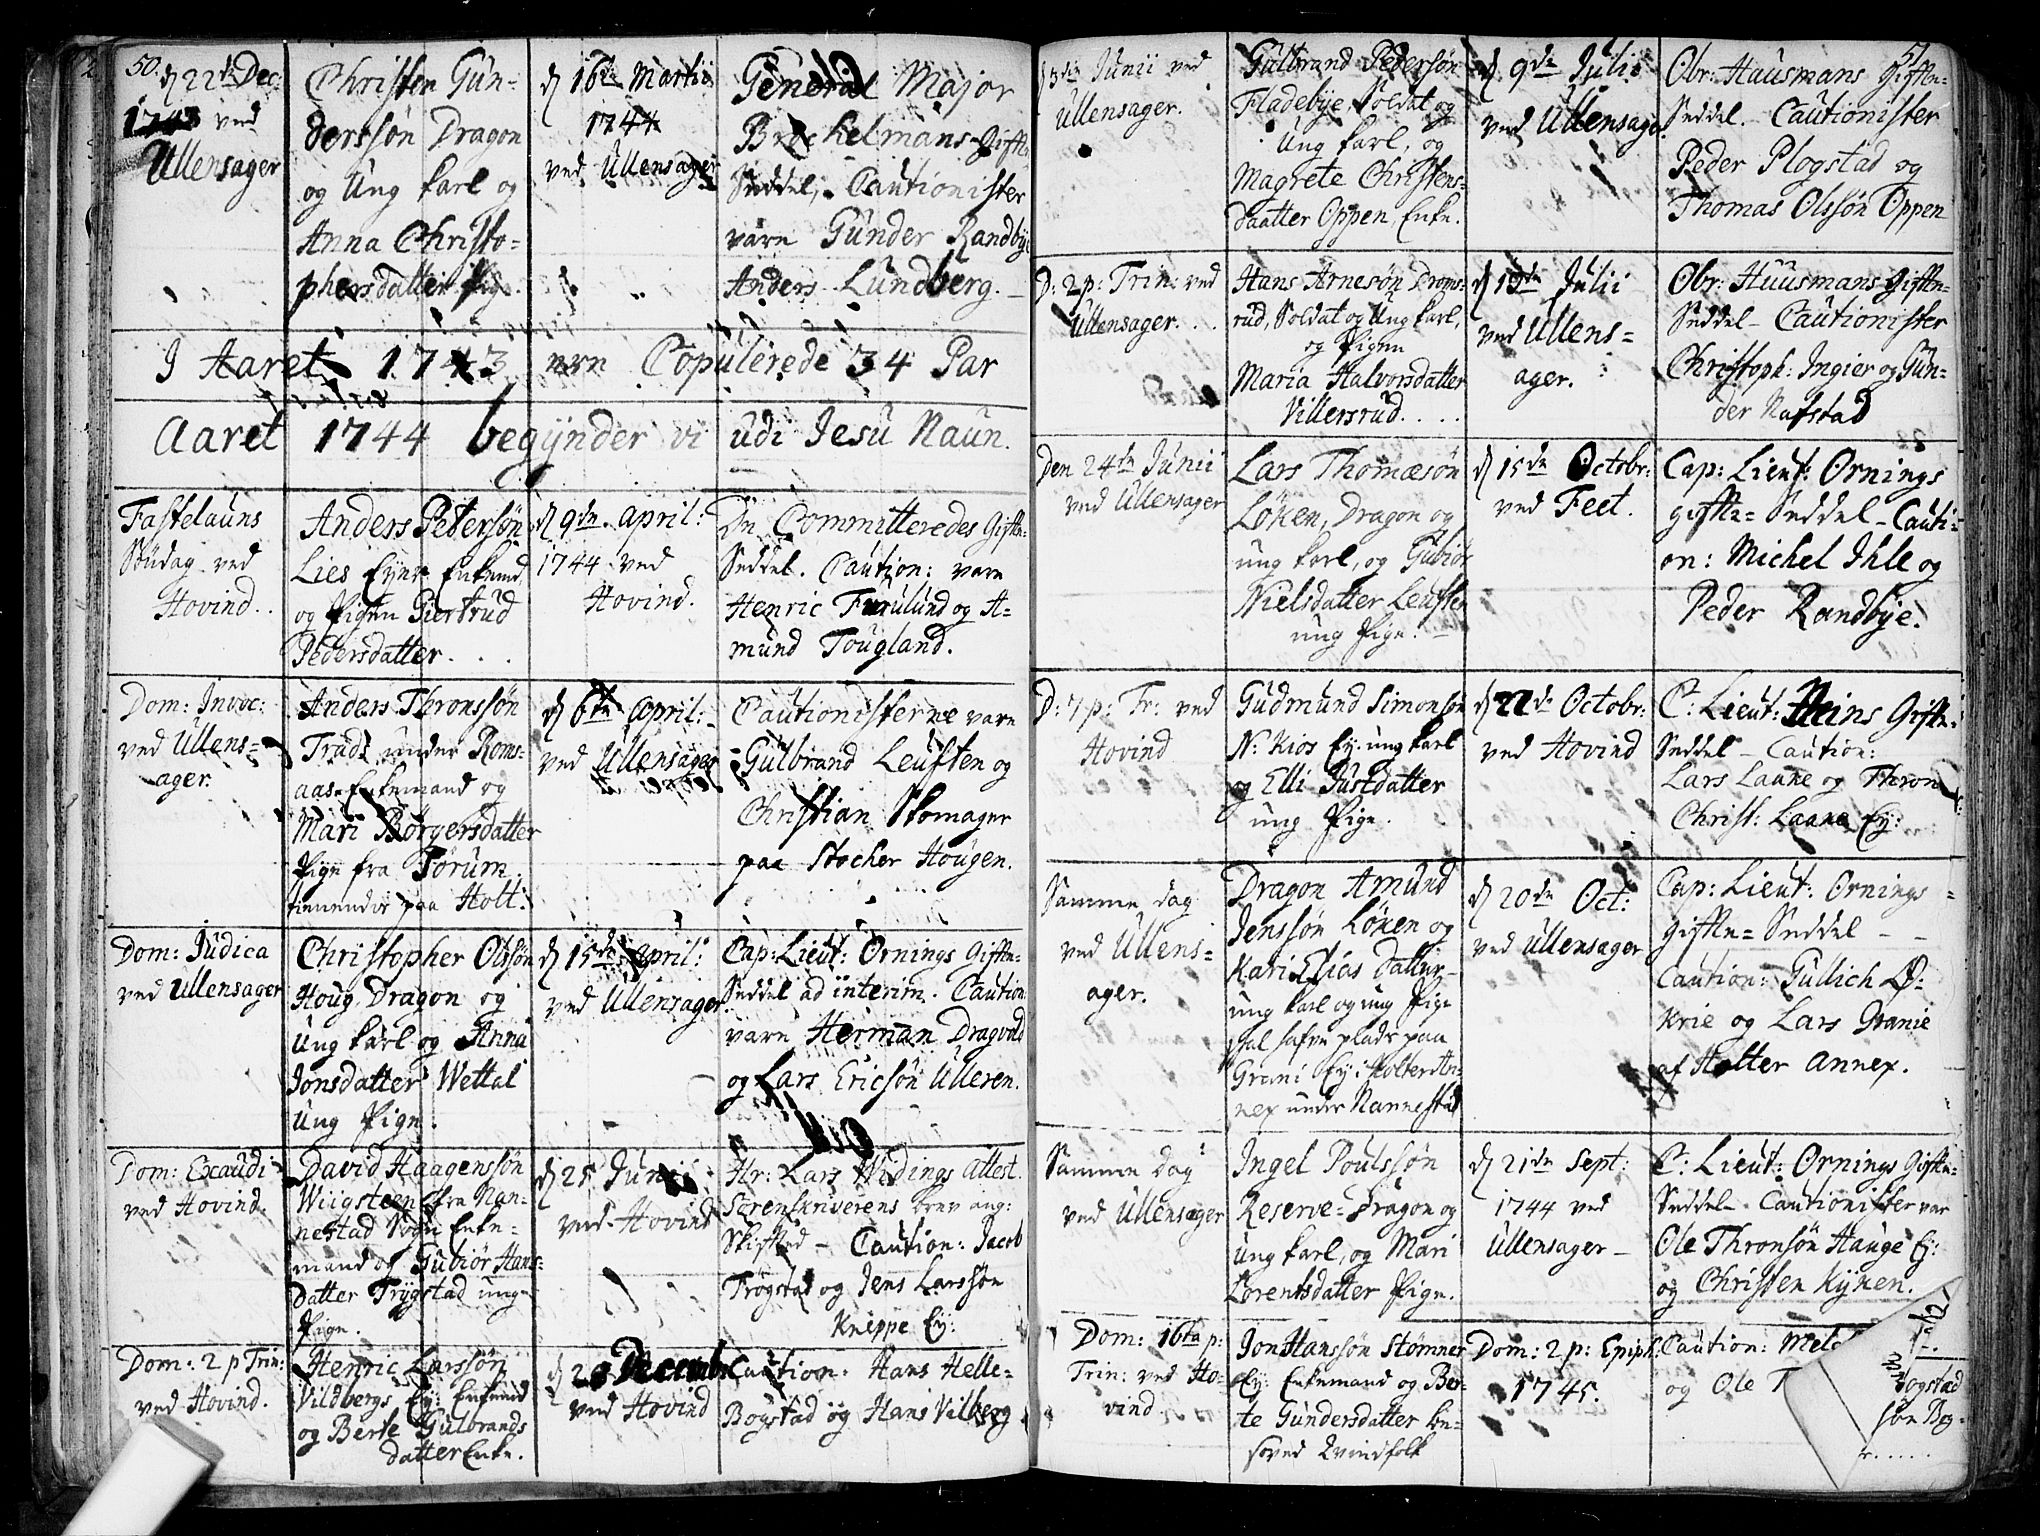 50.
d 22de Dec:
1743 ved
Ullensager
Christen Gün-
dersøn Dragon
og Ung karl og
Anna Christo-
phersdatter Pige.
d 16de Martii
1744
ved Ullensager
General Major
Brockelmans Gifte-
Seddel, Cautionister
vare Günder Randbye
Anders Lundberg.
I Aaret 1743 ere Copulerede 34 Par
Aaret 1744 begÿnder vi udi Jesu Naun.
Fastelauns
Søndag ved
Hovind.
Anders Petersøn
Lies Eyer Enkemd
og Pigen Giertrud
Pedersdatter.
d 9de April:
1744 ved
Hovind.
De Committeredes Gifte-
Seddel. Caution: vare
Henric Furulund og A-
mund Tougland.
Dom: Invoc:
ved Ullens-
ager.
Anders Thronssøn
Trads under Roms-
aas Enkemand og
Mari Børgersdatter
Pige fra Torum
tienende paa Holt:
d 6te April:
ved Ullensager
Cautionisterne vare
Gülbrand Leuften og
Christian Skomager
paa Stocker Hougen.
Dom: Judica
ved Ullensager
Christopher Olssøn
Houg, Dragon og
Ung karl og Anna
Jonsdatter Wettal
Ung Pige.
d 15de April:
ved Ullensager
Cap: Lieut: Ornings Gifte-
Seddel ad interim. Caution:
vare Herman Dragvold
og Lars Ericsøn Ulleren.
Dom: Exaudi
ved Hovind.
David Haagenssøn
Wiigsteen fra Nan-
nestad Sogn Enke-
mand og Gubiør Hans-
datter Trygstad ung
Pige.
d 25 Junii
ved Hovind
Hr: Lars Widings Attest.
Sorenskriverens brev ang:
Skifted - Caution: Jacob
Trøgstad og Jens Larssøn
Kneppe Ey:
Dom: 2 p Trin:
ved Hovind.
Henric Larssøn
Vildbergs Ey: Enkemd
og Berte Gulbrands
datter Enke.
ved Hovind
Caution. Hans Helle-
Bogstad og Hans Vilberg
51.
d 3die Junii ved
Ullensager.
Gulbrand Pedersøn
Fladebye, Soldat og
Ung karl, og
Magrete Christens-
daatter Oppen, Enke.
d 9de Julii
ved Ullensager
Obr: Hausmans Gifte-
Seddel. Cautionister
Peder Plogstad og
Thomas Olssøn Oppen
D: 2 p: Trin: ved
Ullensager.
Hans Arnesøn Droms-
rud, Soldat og Ung karl,
og Pigen
Maria Halvorsdatter
Villersrud.
Julii
ved Ullens-
ager.
Obr: Huusmans Gifte-
Seddel - Cautionister
Christoph: Ingier og Gün-
der Nafstad
Den 24te Junii
ved Ullensager
Lars Thomæsøn
Løken, Dragon og
ung karl, og Gubiør
Nielsdatter Leuften
ung Pige.
d 15de Octobr:
ved Feet.
Cap: Lieut: Ornings
gifte-Seddel - Cauti-
on: Michel Ihle og
Peder Randbye.
D: 7 p: Tr: ved
Hovind
Gudmund Simonsøn
N: Kios Ey: ung karl
og Elli Justdatter
ung Pige.
d 22de Octobr:
ved Hovind
C: Lieut: Heins Gifte-
Seddel - Caution:
Lars Laane og Thron
Christ: Laane Ey:
Samme dag
ved Ullens-
ager.
Dragon Amund
Jenssøn Løken og
Kari Elias datter
ung karl og ung Pige
skal hafve plads paa
Grani Ey i Holter An-
nex under Nannestad
d 20de Oct:
ved Ullensager
Cap: Lieut: Ornings
Gifte-Seddel - -
Caution: Gullich Ø-
krie og Lars Granie
af Holter Annex.
Samme Dag
ved Ullensager
Ingel Poulssøn
Reserve-Dragon og
Ung karl, og Mari
Lorentsdatter Pige.
d 21de Sept:
1744 ved
Ullensager -
C: Lieut: Ornings Gifte-
Seddel - Cautionister var
Ole Thronsøn Hauge Ey:
og Christen Kÿnen.
Dom: 16ta p:
Trin: ved Ho-
vind.
Jon Hanssøn Stømner
Ey: Enkemand og Ber-
te Gundersdatter be-
soved Qvindfolk
Dom: 2 p: Epiph:
1745.
Caution:
og Ole